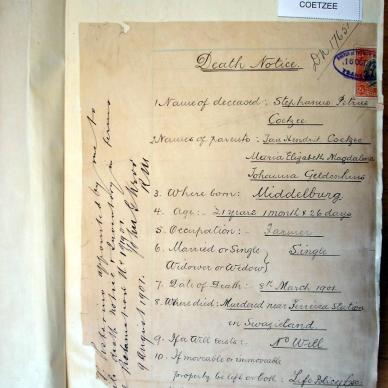 COETZEE
Dn 1765
Death Notice.
1. Name of deceased: Stephanus Petrus
Coetzee
2. Names of parents: Jan Hendrik Coetzee
Maria Elizabeth Magdalena
Johanna Geldenhuis
3. Where born: Middelburg
4. Age:- 21 years 1 month & 26 days
5. Occupation:- Farmer
6. Married or Single } Single
Widower or Widow}
7. Date of Death: 8th March 1901
8. Where died: Murdered near Station
in Swaziland
9. If a Will exists: No Will
10. If moveable or immoveable
property be left or both: Life Policy
being appointed by me to
death notice in terms
Proclamation
R M
9 August 1901.